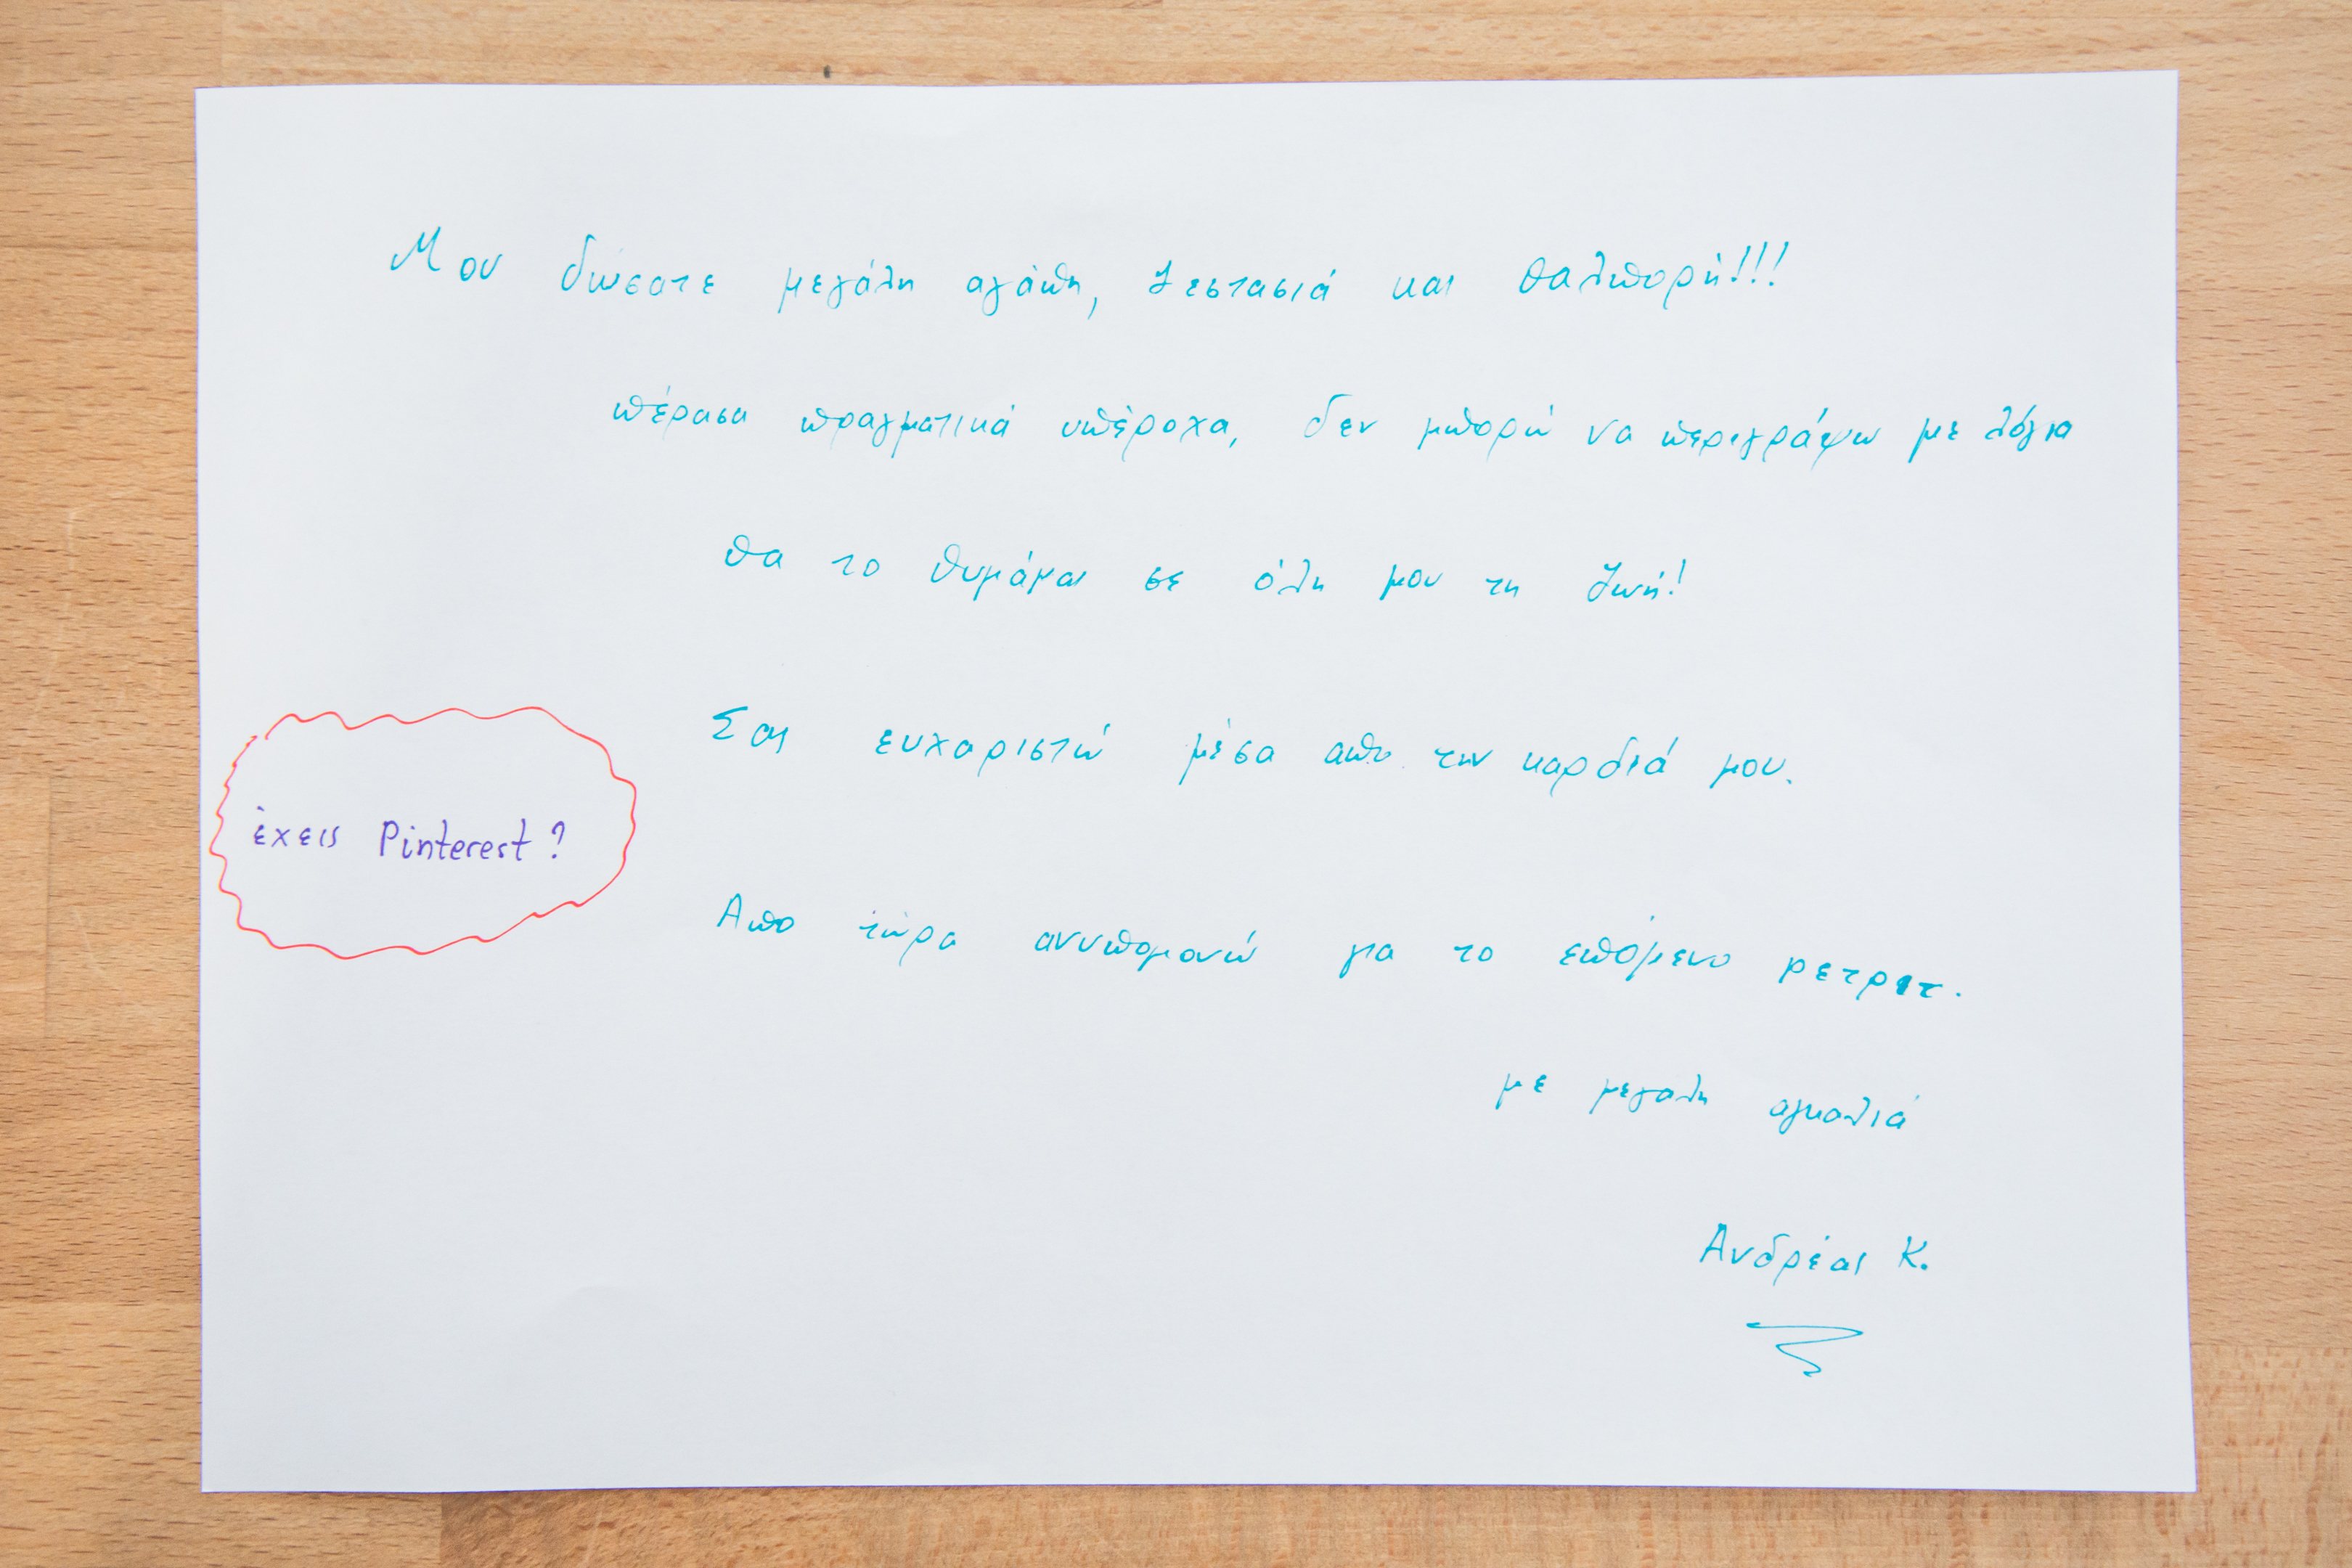 Μου δώσατε μεγάλη αγάπη, ζεστασιά και θαλπορή!!!
πέρασα πραγματικά υπέροχα, δεν μπορώ να περιγράψω με λόγια
θα το θυμάμαι σε όλη μου τη ζωή!
Σας ευχαριστώ μέσα απο την καρδιά μου.
έχεις Pinterest?
Απο τώρα ανυπομονώ για το επόμενο ρετριτ.
με μεγαλη αγκαλιά
Ανδρέας Κ.